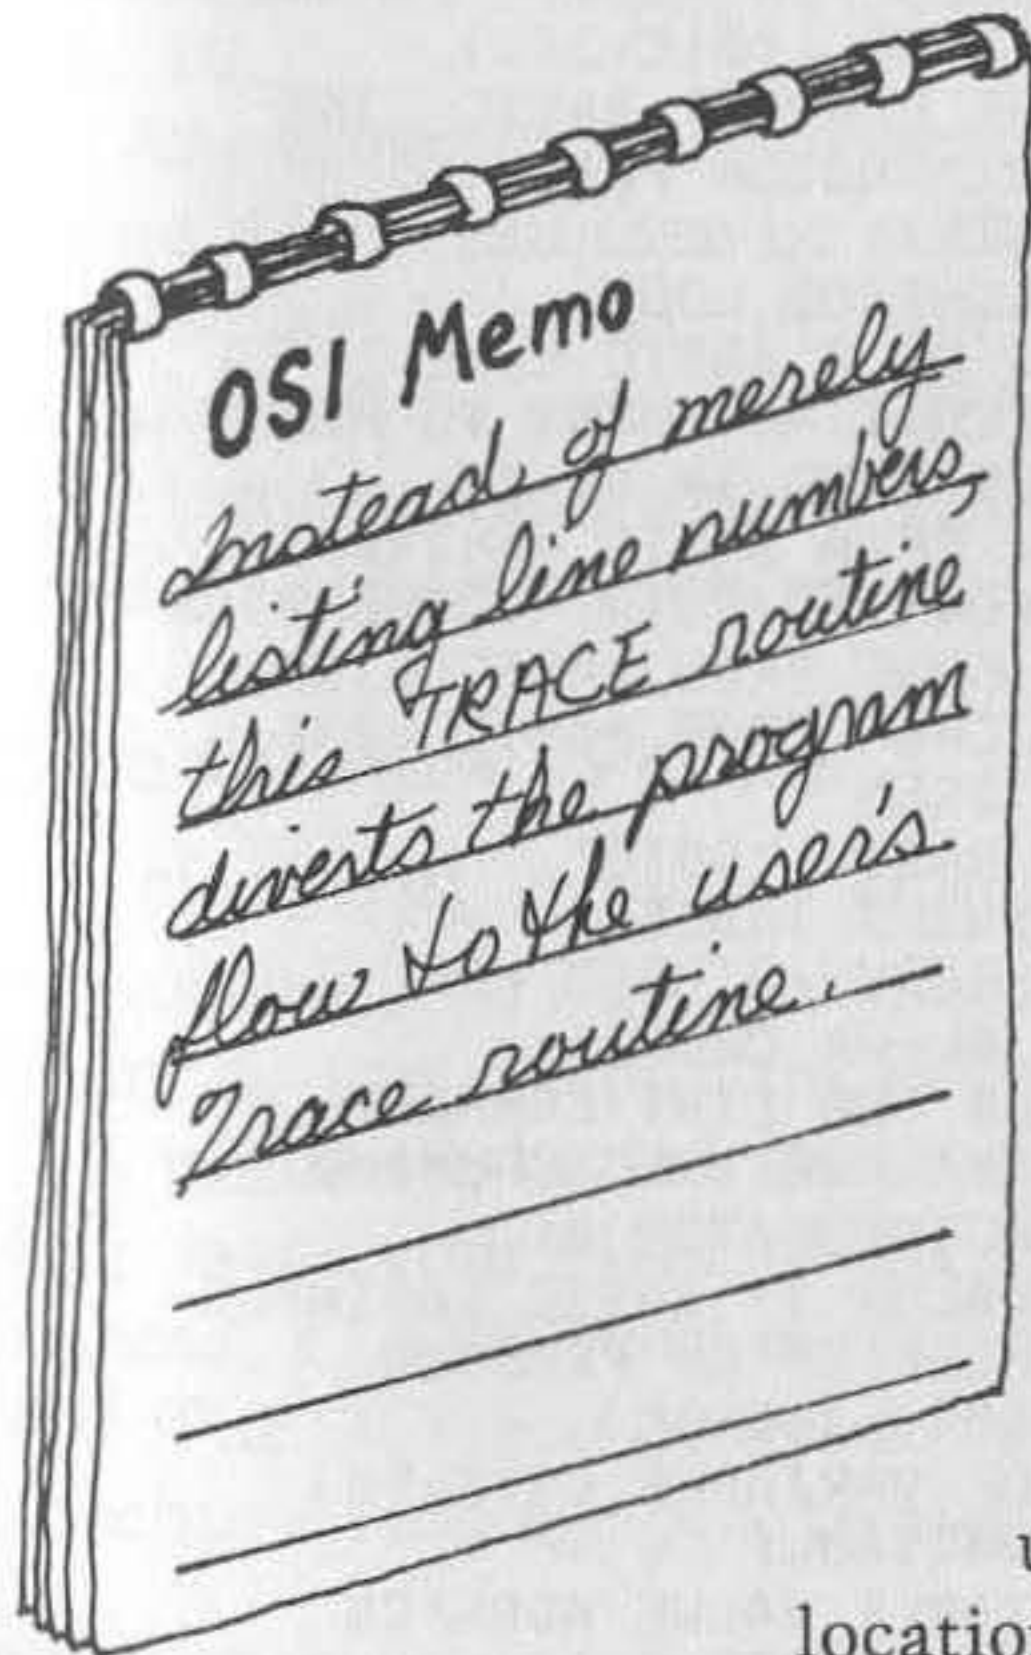 OSI Memo
Instead of merely
listing line numbers,
this TRACE routine
diverts the program
flow to the user's
Trace routine.
u
location